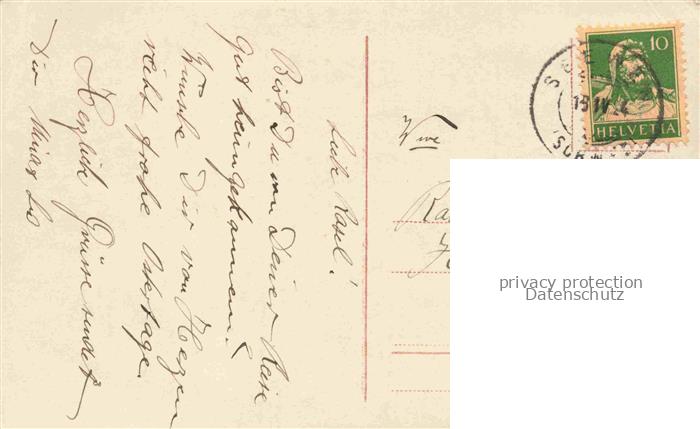 Liebe Rosel!
Bist Du von Deiner Reise
gut heimgekommen?
Wünsche Dir von Herzen
recht frohe Ostertage.
Herzliche Grüsse sendet
Dir
Wwe
10
HELVETIA
privacy protection
Datenschutz